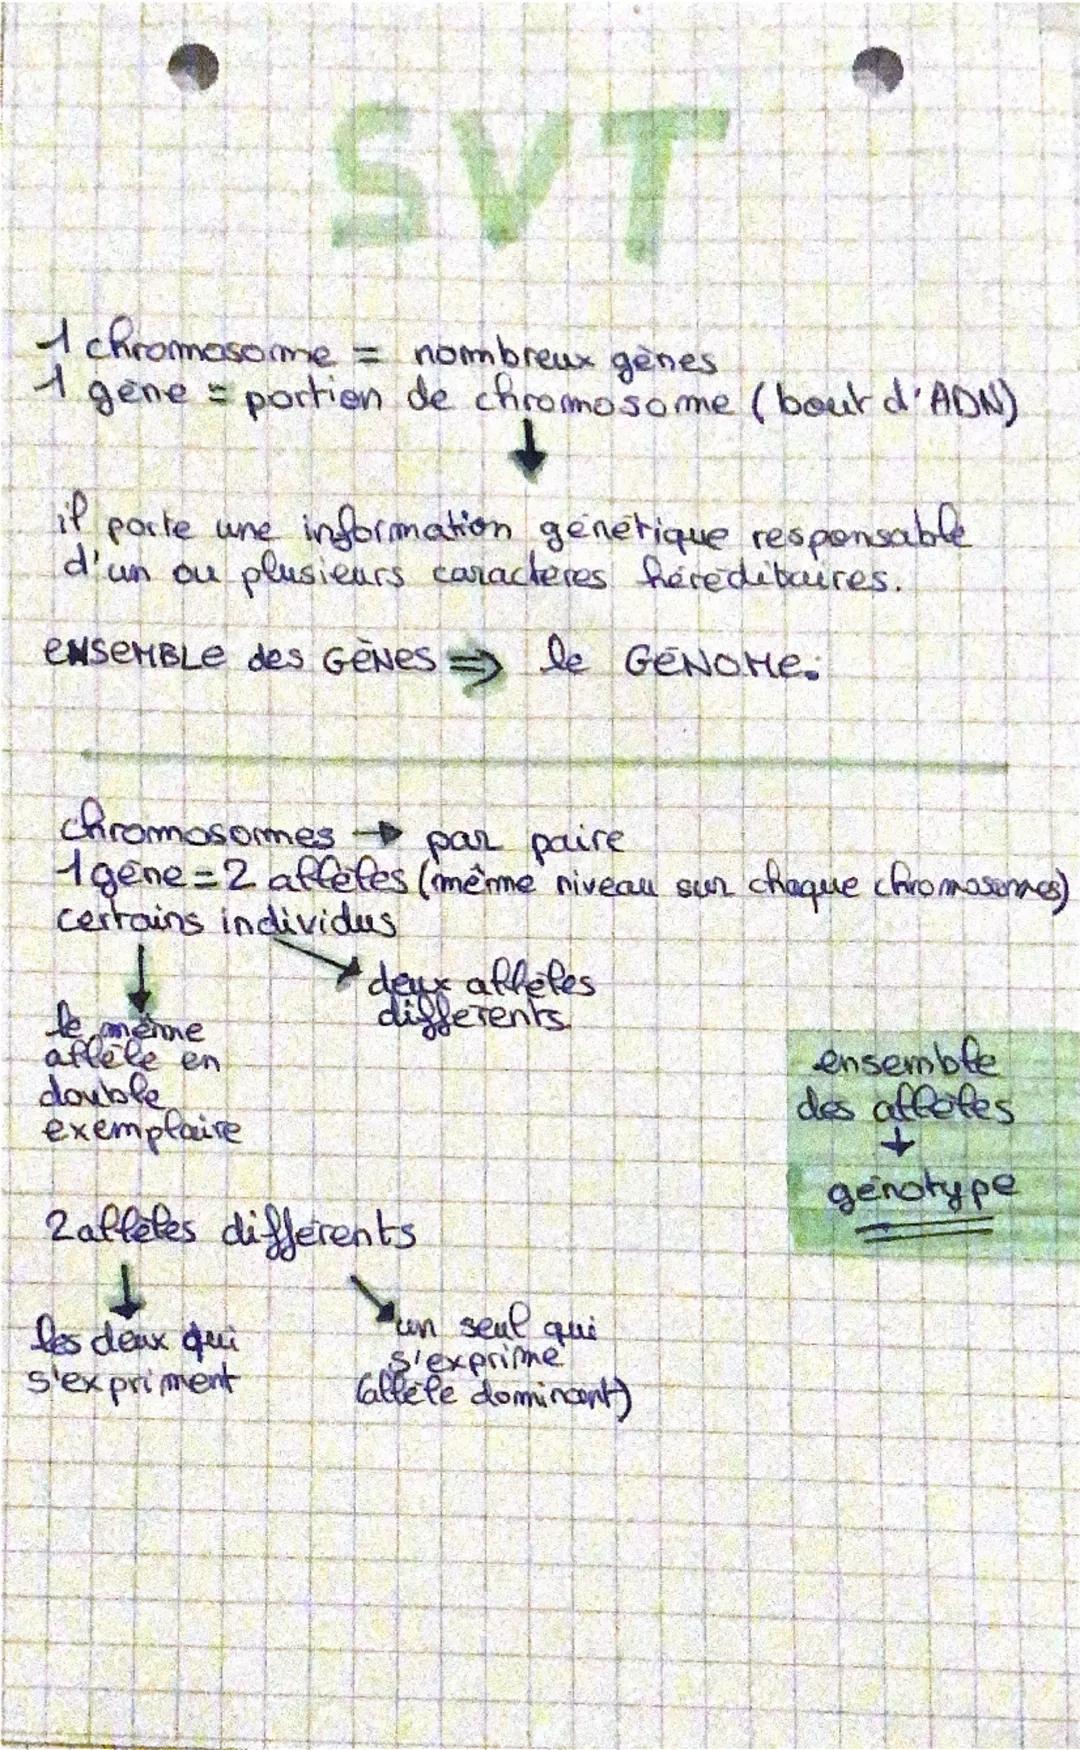 SVT
1 chromosome = nombreux gènes
1 gène = portion de chromosome (bout d'ADN)
↓
il porte une information génétique responsable
d'un ou plusieurs caractères héréditaires.
ENSEMBLE des GÈNES ⇒ le GÉNOME.
chromosomes → par paire
1 gène = 2 allèles (même niveau sur chaque chromosomes)
certains individus
deux allèles
différents
le même
allèle en
double
exemplaire
ensemble
des allèles
↓
génotype
2 allèles différents
les deux qui
s'expriment
un seul qui
s'exprime
(allèle dominant)